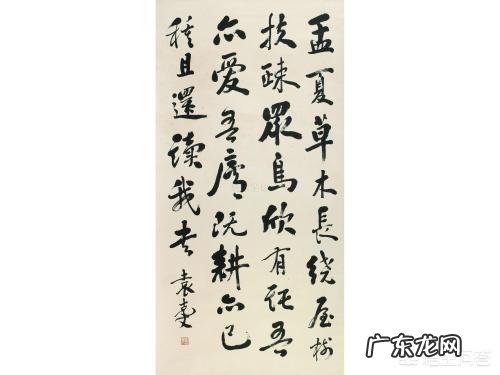 孟夏草木長绕屋树
扶疎眾鳥欣有託吾
亦愛吾廬既耕亦已
種且還讀我书
袁
广东龙网